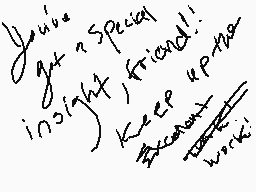 You've
got a special
insight, friend!!
Keep up the
Excellent
work!